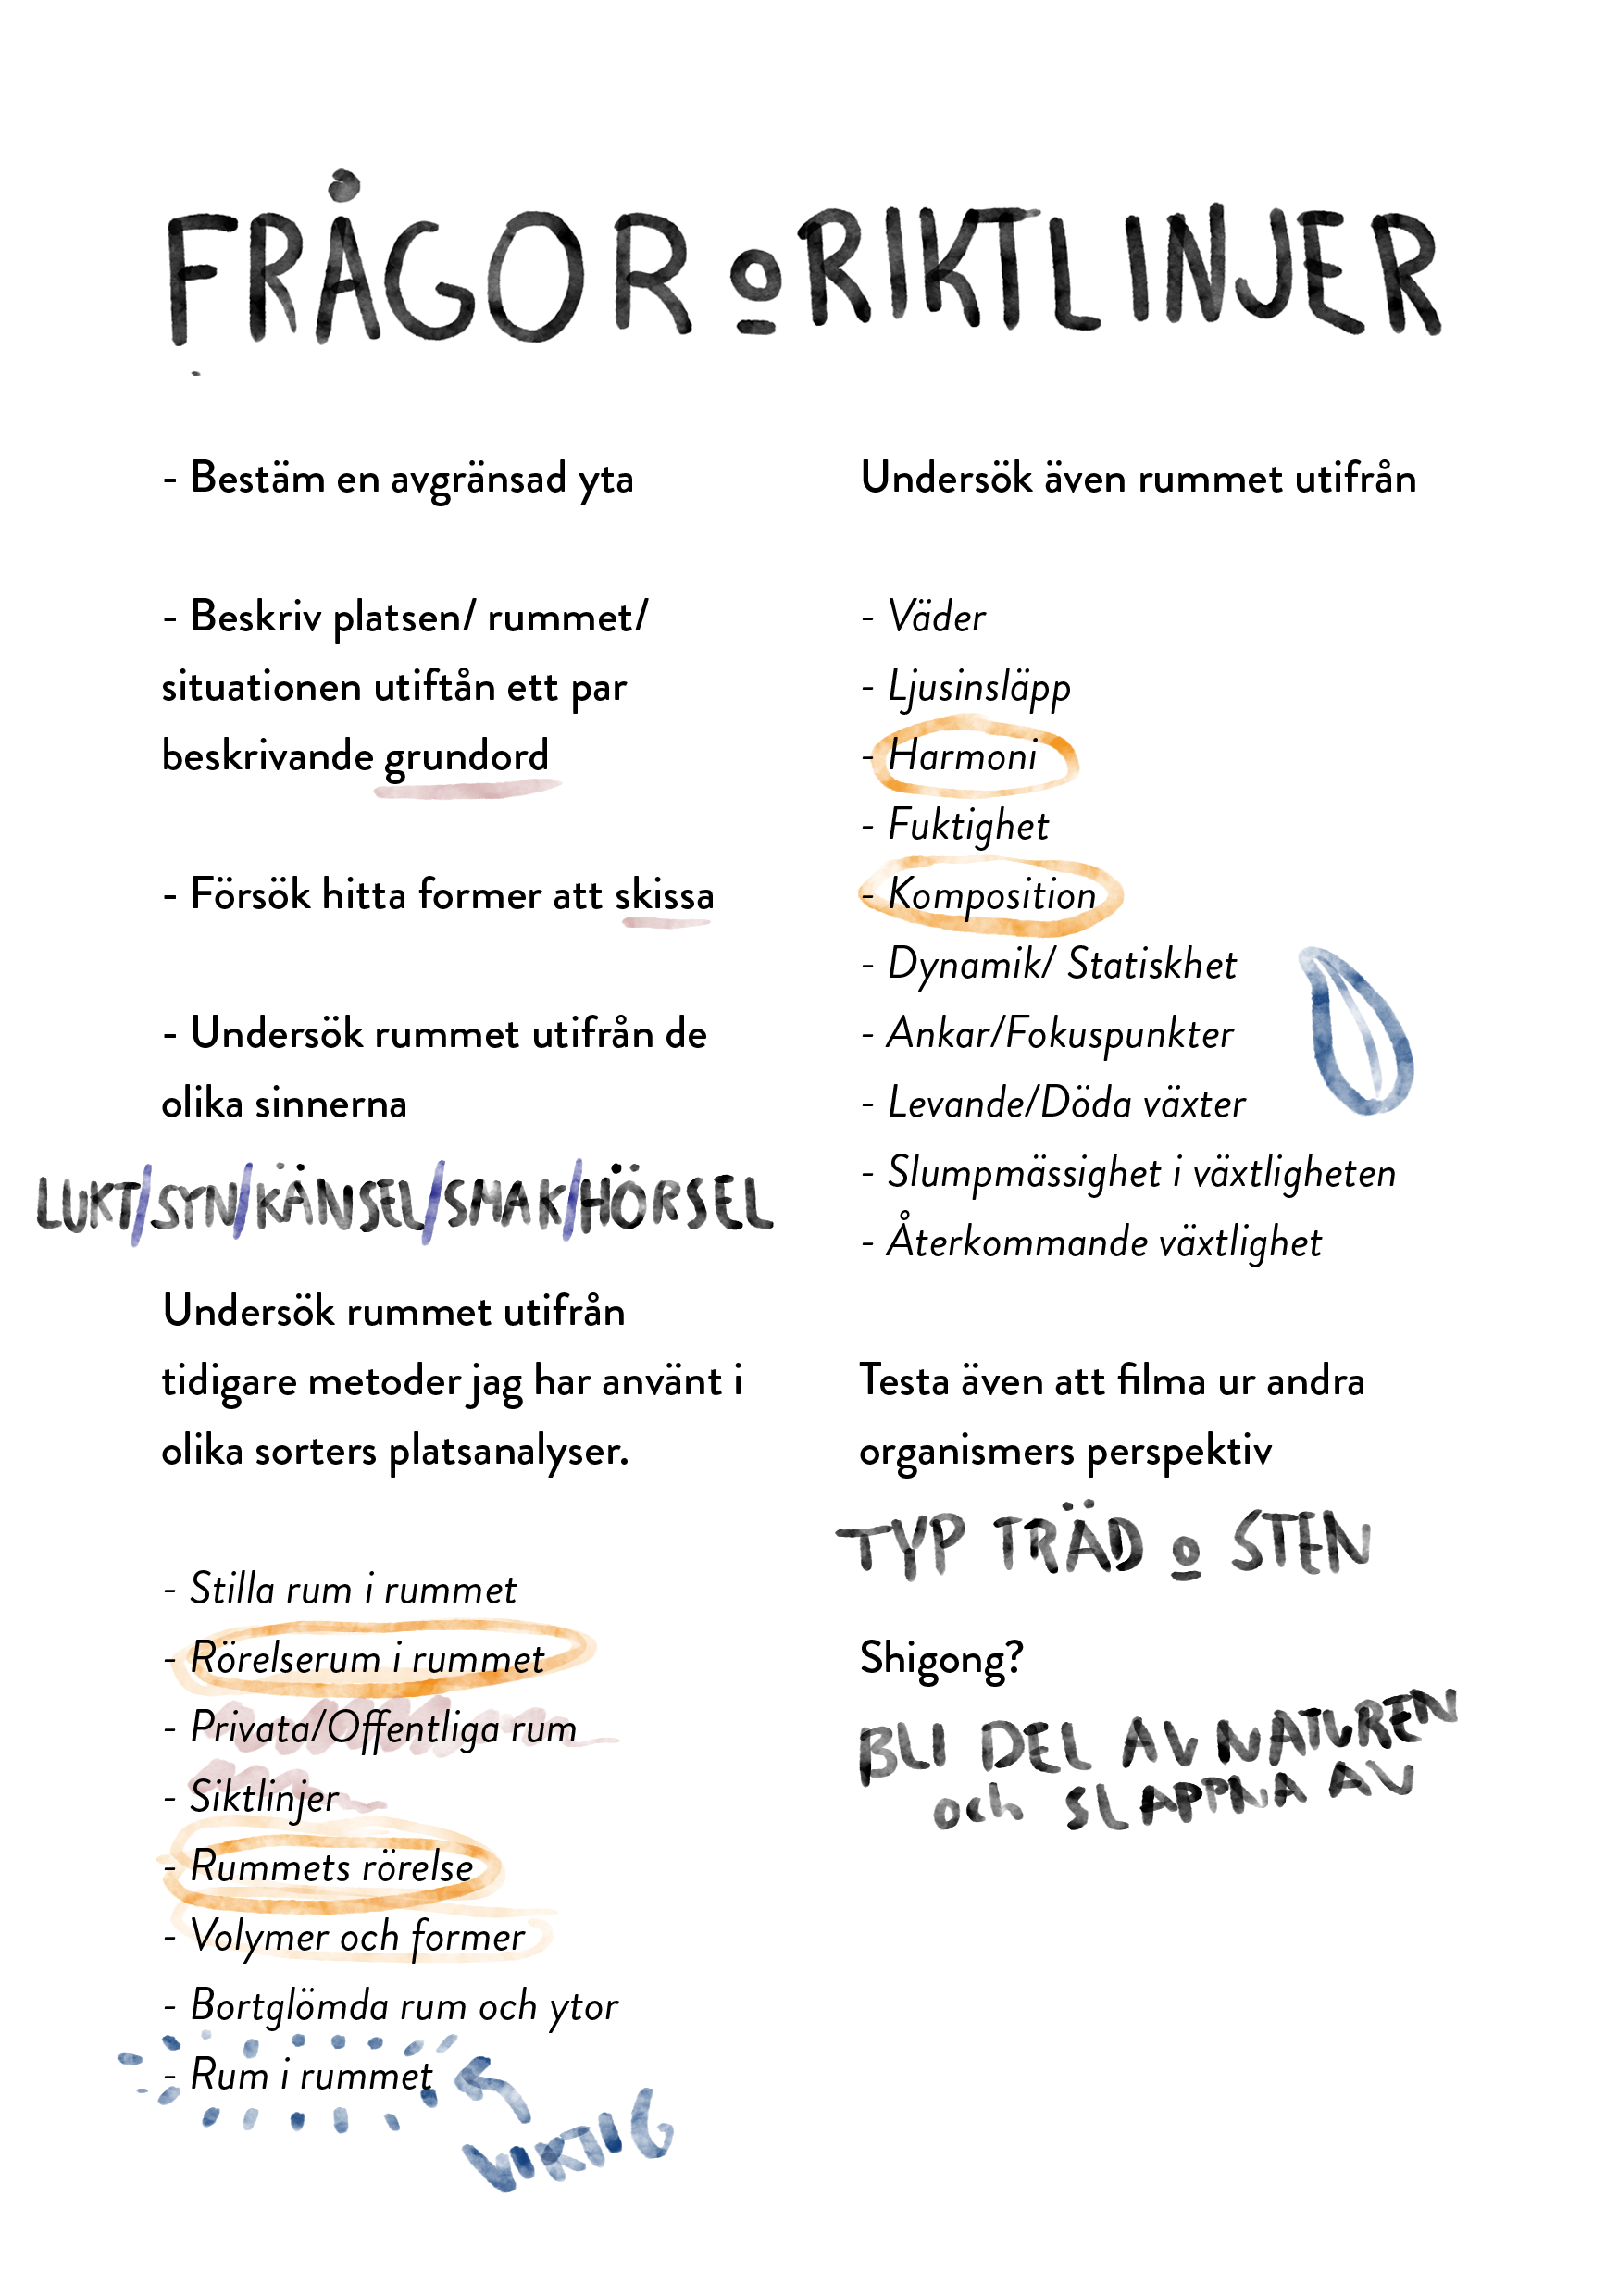 FRÅGOR o RIKTLINJER
- Bestäm en avgränsad yta
- Beskriv platsen/ rummet/
situationen utiftån ett par
beskrivande grundord
- Försök hitta former att skissa
- Undersök rummet utifrån de
olika sinnerna
LUKT/SYN/KÄNSEL/SMAK/HÖRSEL
Undersök rummet utifrån
tidigare metoder jag har använt i
olika sorters platsanalyser.
- Stilla rum i rummet
- Rörelserum i rummet
- Privata/Offentliga rum
- Siktlinjer
- Rummets rörelse
- Volymer och former
- Bortglömda rum och ytor
- Rum i rummet
VIKTIG
Undersök även rummet utifrån
- Väder
- Ljusinsläpp
- Harmoni
- Fuktighet
- Komposition
- Dynamik/ Statiskhet
- Ankar/Fokuspunkter
- Levande/Döda växter
- Slumpmässighet i växtligheten
- Återkommande växtlighet
Testa även att filma ur andra
organismers perspektiv
TYP TRÄD o STEN
Shigong?
BLI DEL AV NATUREN
och SLAPPNA AV